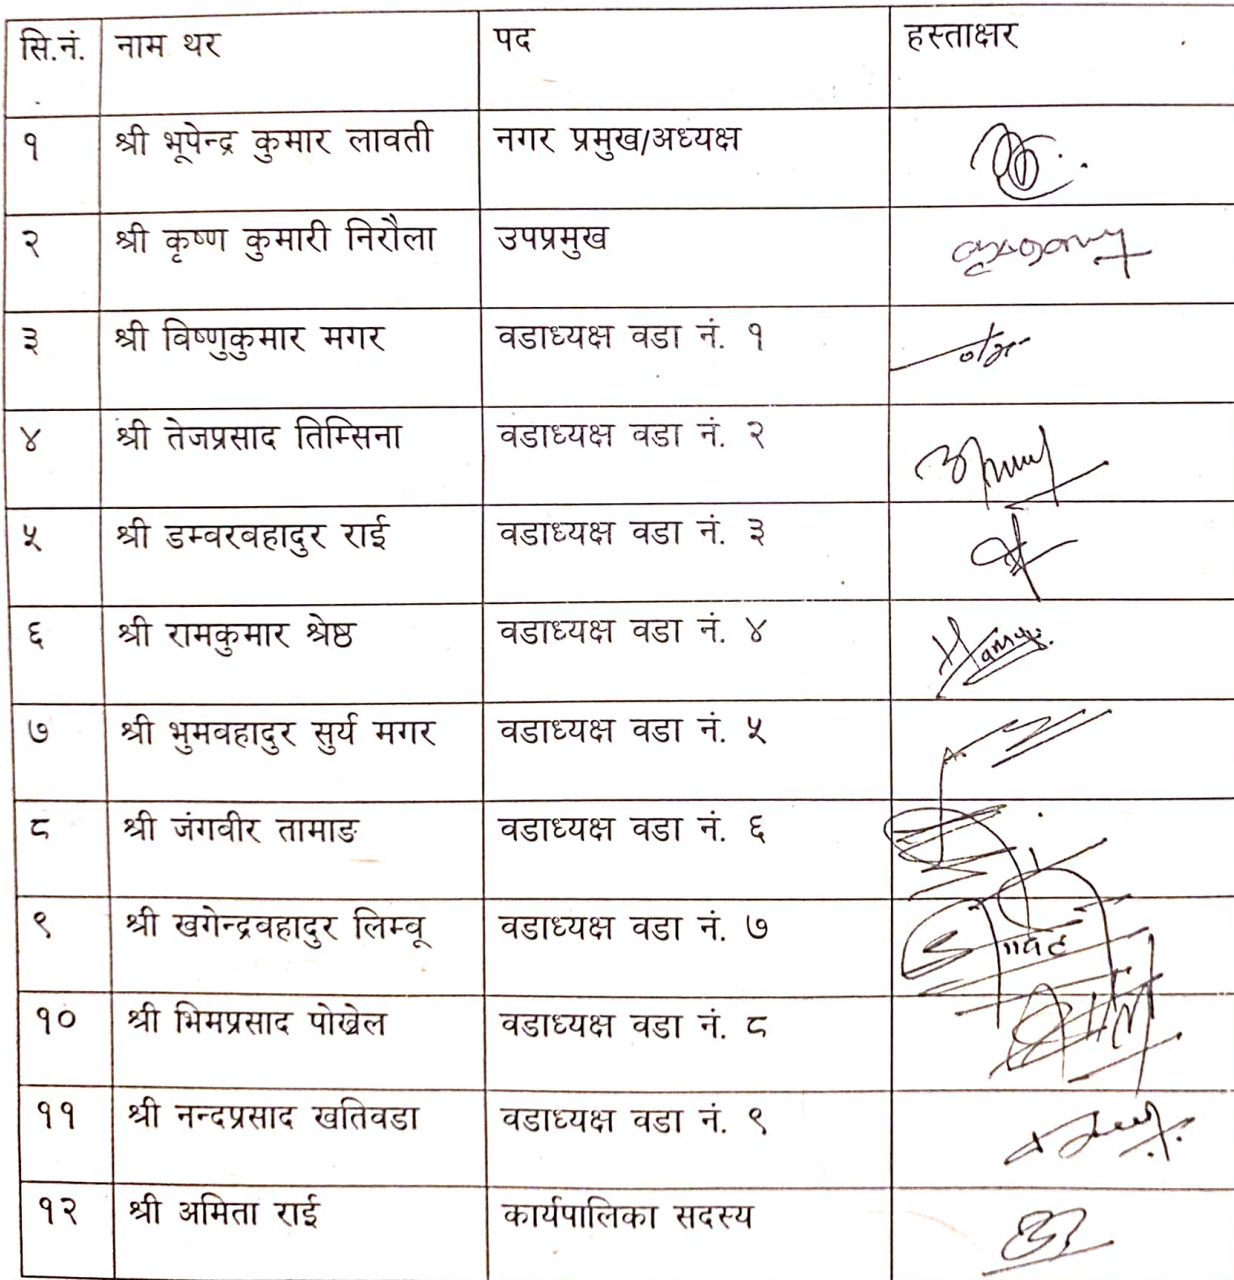 सि.नं. नाम थर पद हस्ताक्षर
१ श्री भूपेन्द्र कुमार लावती नगर प्रमुख/अध्यक्ष
२ श्री कृष्ण कुमारी निरौला उपप्रमुख
३ श्री विष्णुकुमार मगर वडाध्यक्ष वडा नं. १
४ श्री तेजप्रसाद तिम्सिना वडाध्यक्ष वडा नं. २
५ श्री डम्वरवहादुर राई वडाध्यक्ष वडा नं. ३
६ श्री रामकुमार श्रेष्ठ वडाध्यक्ष वडा नं. ४
७ श्री भुमवहादुर सुर्य मगर वडाध्यक्ष वडा नं. ५
८ श्री जंगवीर तामाङ वडाध्यक्ष वडा नं. ६
९ श्री खगेन्द्रवहादुर लिम्वू वडाध्यक्ष वडा नं. ७
१० श्री भिमप्रसाद पोख्रेल वडाध्यक्ष वडा नं. ८
११ श्री नन्दप्रसाद खतिवडा वडाध्यक्ष वडा नं. ९
१२ श्री अमिता राई कार्यपालिका सदस्य